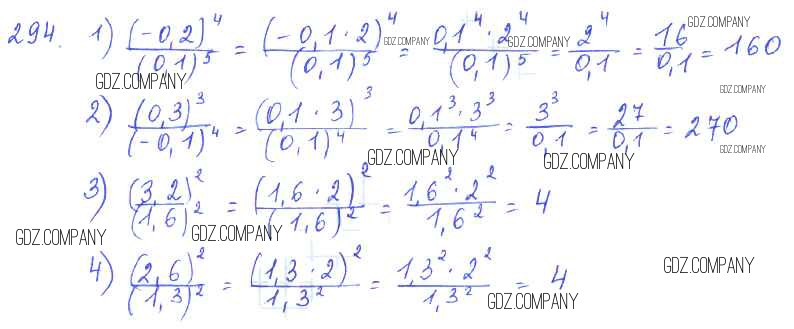 294. 1) (-0,2)^4/(0,1)^5 = (-0,1·2)^4/(0,1)^5 = 0,1^4·2^4/(0,1)^5 = 2^4/0,1 = 16/0,1 = 160
2) (0,3)^3/(-0,1)^4 = (0,1·3)^3/(0,1)^4 = 0,1^3·3^3/0,1^4 = 3^3/0,1 = 27/0,1 = 270
3) (3,2)^2/(1,6)^2 = (1,6·2)^2/(1,6)^2 = 1,6^2·2^2/1,6^2 = 4
4) (2,6)^2/(1,3)^2 = (1,3·2)^2/1,3^2 = 1,3^2·2^2/1,3^2 = 4
GDZ.COMPANY
GDZ.COMPANY
GDZ.COMPANY
GDZ.COMPANY
GDZ.COMPANY
GDZ.COMPANY
GDZ.COMPANY
GDZ.COMPANY
GDZ.COMPANY
GDZ.COMPANY
GDZ.COMPANY
GDZ.COMPANY